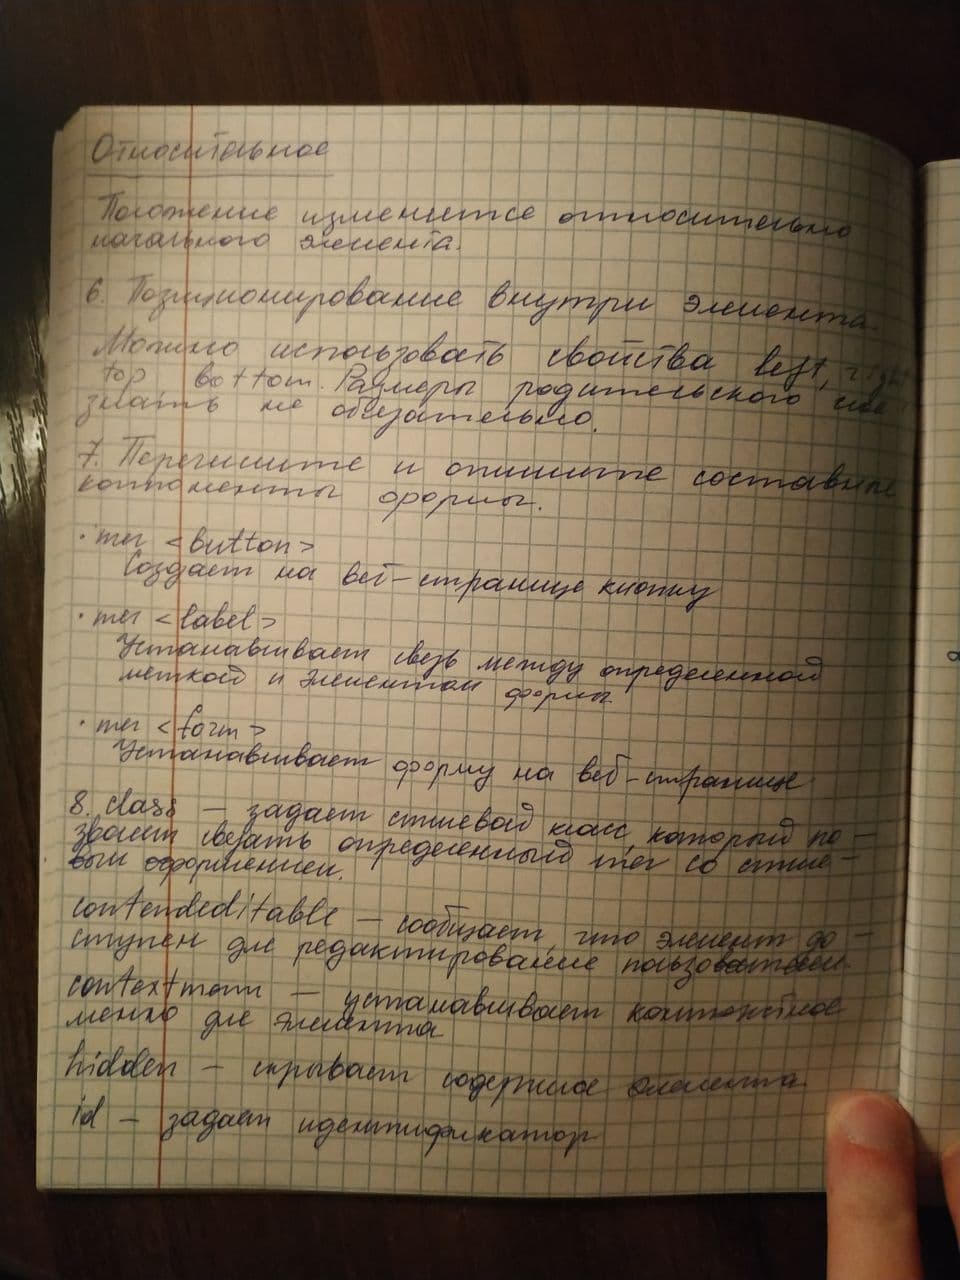 Относительное
Положение изменяется относительно
начального элемента.
6. Позиционирование внутри элемента.
Можно использовать свойства left, right
top, bottom. Размеры родительского
знать не обязательно.
7. Перечислите и опишите составные
компоненты формы.
· тег <button>
Создает на веб-странице кнопку
· тег <label>
Устанавливает связь между определенной
меткой и элементом формы
· тег <form>
Устанавливает форму на веб-странице
8. class — задает стилевой класс, который по-
зволяет связать определенный тег со стиле-
вым оформлением.
contendeditable — сообщает, что элемент до-
ступен для редактирование пользователем.
contextmenu — устанавливает контекстное
меню для элемента
hidden — скрывает содержиое элемента.
id — задает идентификатор